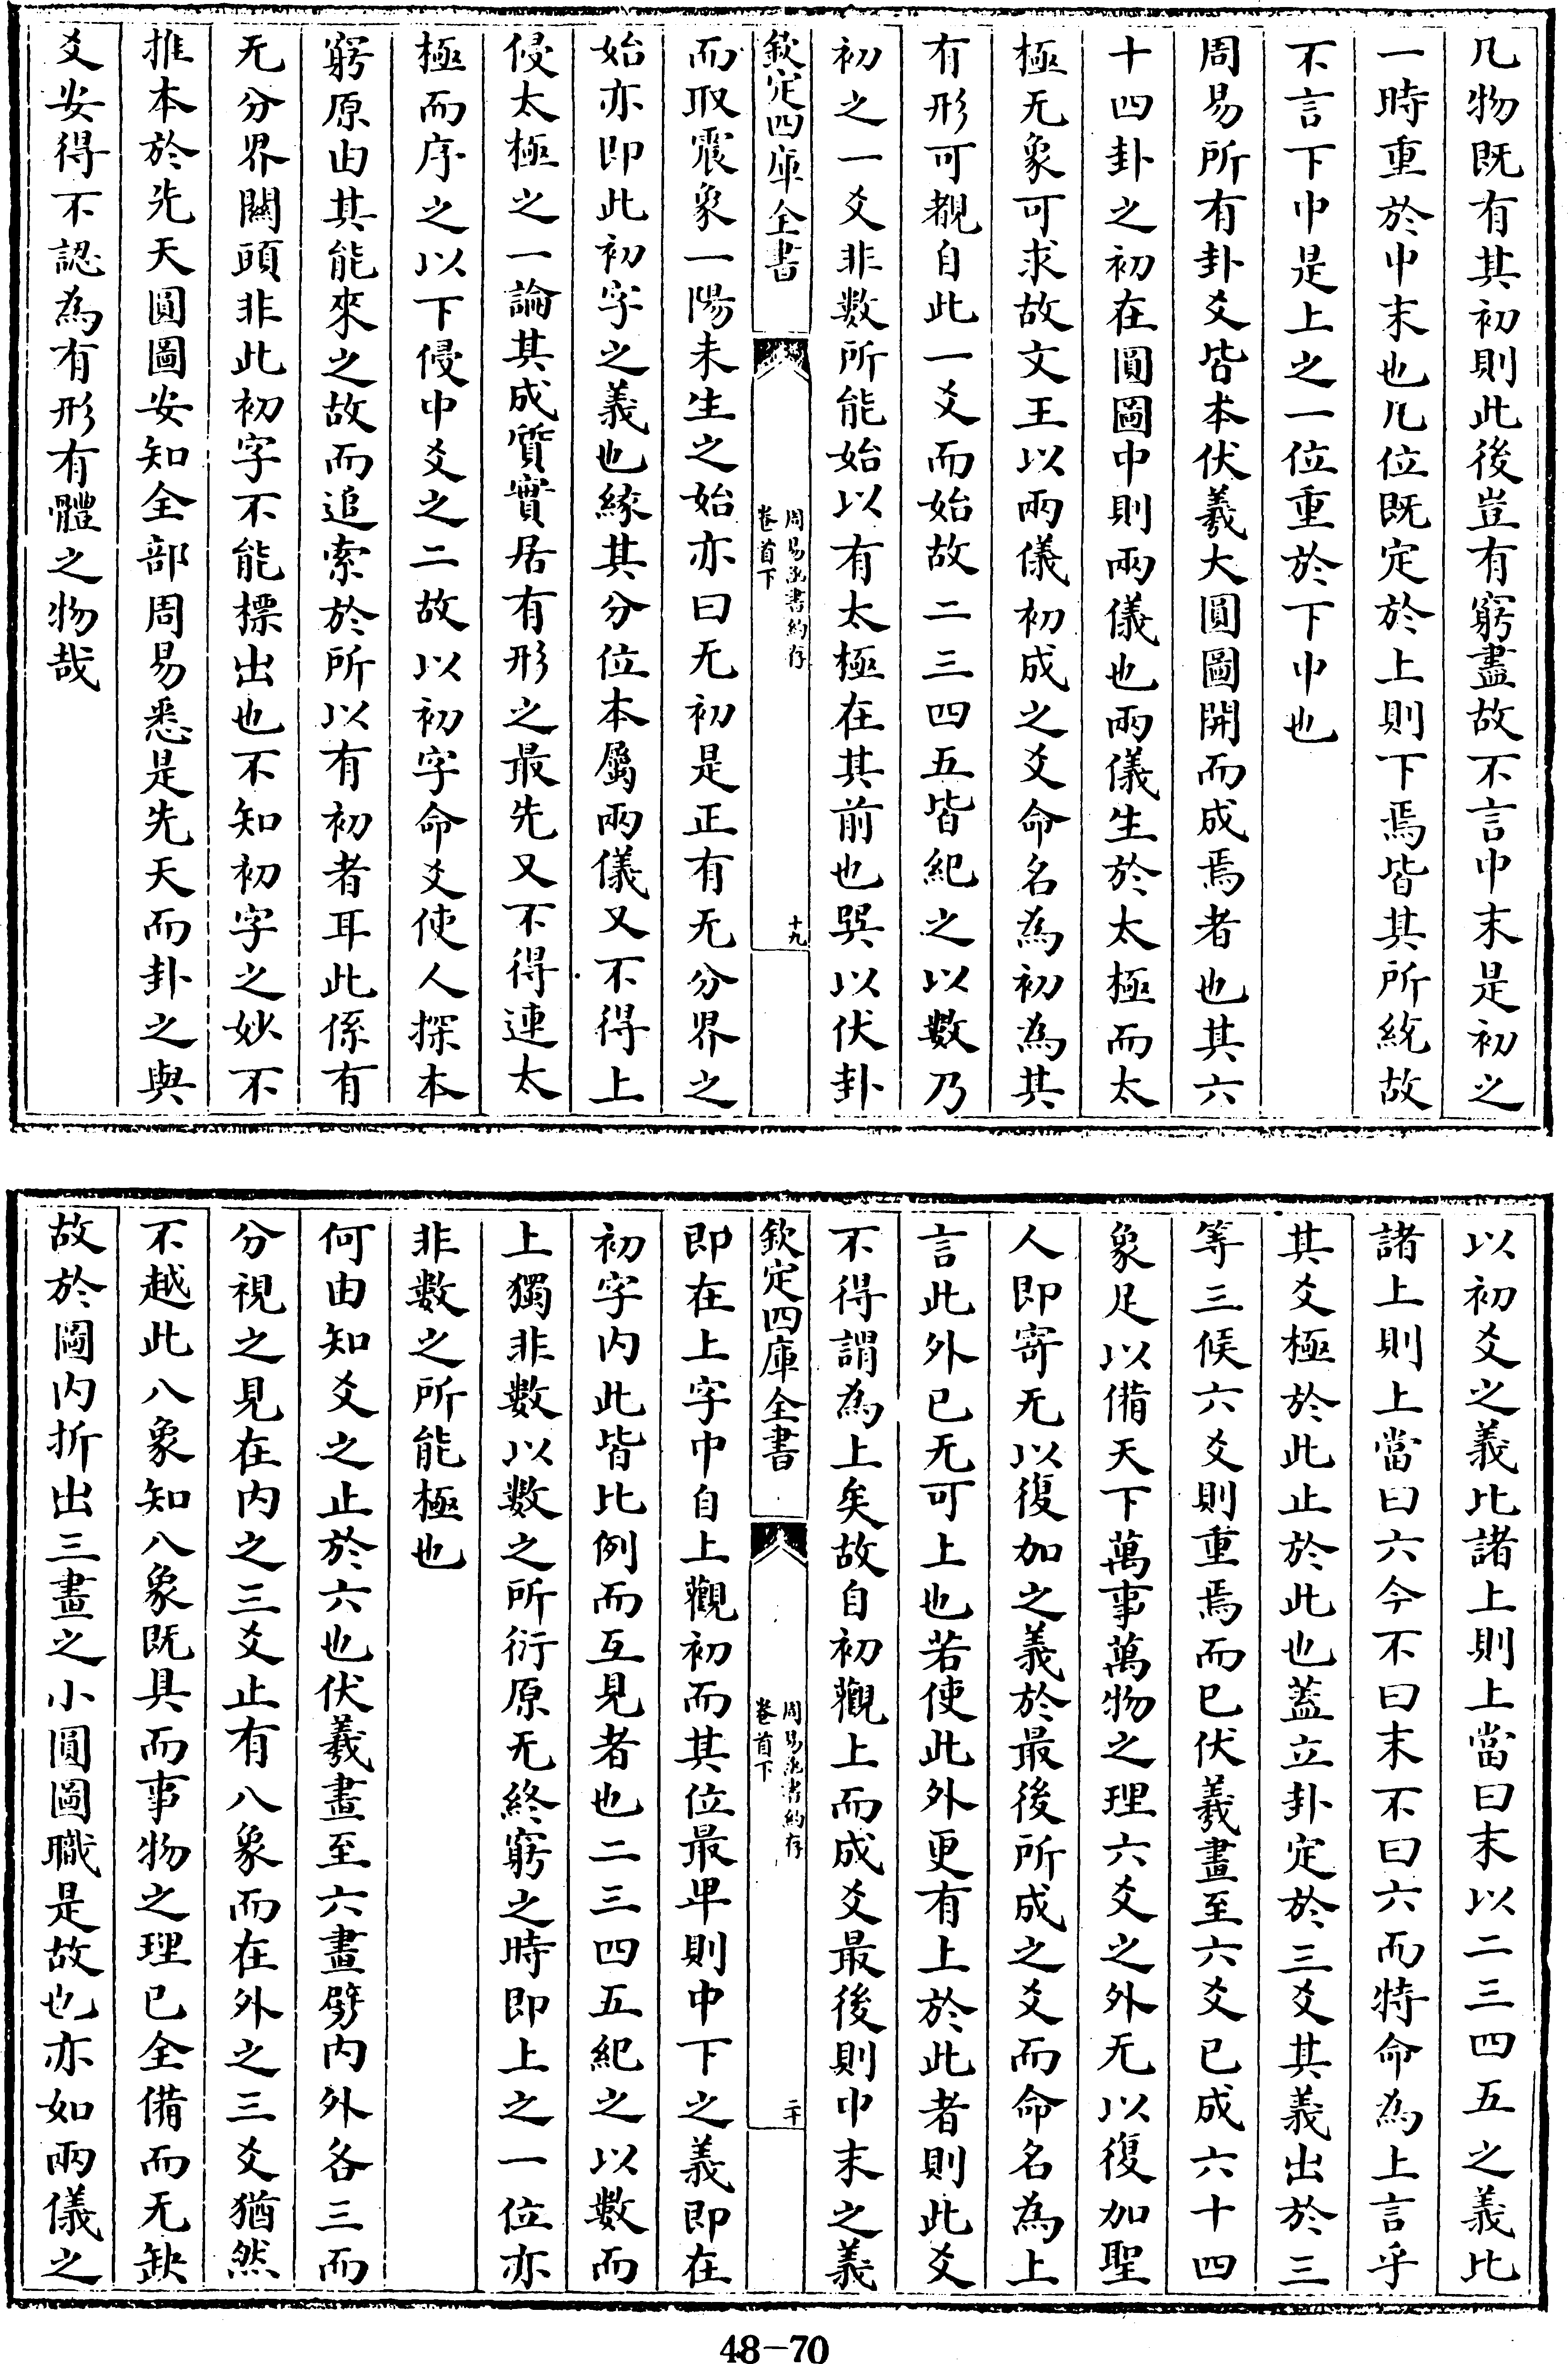 凡物既有其初則此後豈有窮盡故不言中末是初之
一時重於中末也凡位既定於上則下焉皆其所統故
不言下中是上之一位重於下中也
周易所有卦爻皆本伏羲大圓圖開而成焉者也其六
十四卦之初在圓圖中則兩儀也兩儀生於太極而太
極无象可求故文王以兩儀初成之爻命名為初為其
有形可覩自此一爻而始故二三四五皆紀之以數乃
初之一爻非數所能始以有太極在其前也巽以伏卦
欽定四庫全書
周易函書約存
卷首下
十九
而取震象一陽未生之始亦曰无初是正有无分界之
始亦即此初字之義也緣其分位本屬兩儀又不得上
侵太極之一論其成質實居有形之最先又不得連太
極而序之以下侵中爻之二故以初字命爻使人探本
窮原由其能來之故而追索於所以有初者耳此係有
无分界關頭非此初字不能標出也不知初字之妙不
推本於先天圓圖安知全部周易悉是先天而卦之與
爻安得不認為有形有體之物哉
以初爻之義比諸上則上當曰末以二三四五之義比
諸上則上當曰六今不曰末不曰六而特命為上言乎
其爻極於此止於此也蓋立卦定於三爻其義出於三
等三候六爻則重焉而已伏羲畫至六爻已成六十四
象足以備天下萬事萬物之理六爻之外无以復加聖
人即寄无以復加之義於最後所成之爻而命名為上
言此外已无可上也若使此外更有上於此者則此爻
不得謂為上矣故自初觀上而成爻最後則中末之義
欽定四庫全書
周易函書約存
卷首下
二十
即在上字中自上觀初而其位最卑則中下之義即在
初字内此皆比例而互見者也二三四五紀之以數而
上獨非數以數之所衍原无終窮之時即上之一位亦
非數之所能極也
何由知爻之止於六也伏羲畫至六畫劈内外各三而
分視之見在内之三爻止有八象而在外之三爻猶然
不越此八象知八象既具而事物之理已全備而无缺
故於圖内折出三畫之小圓圖職是故也亦如兩儀之
48-70